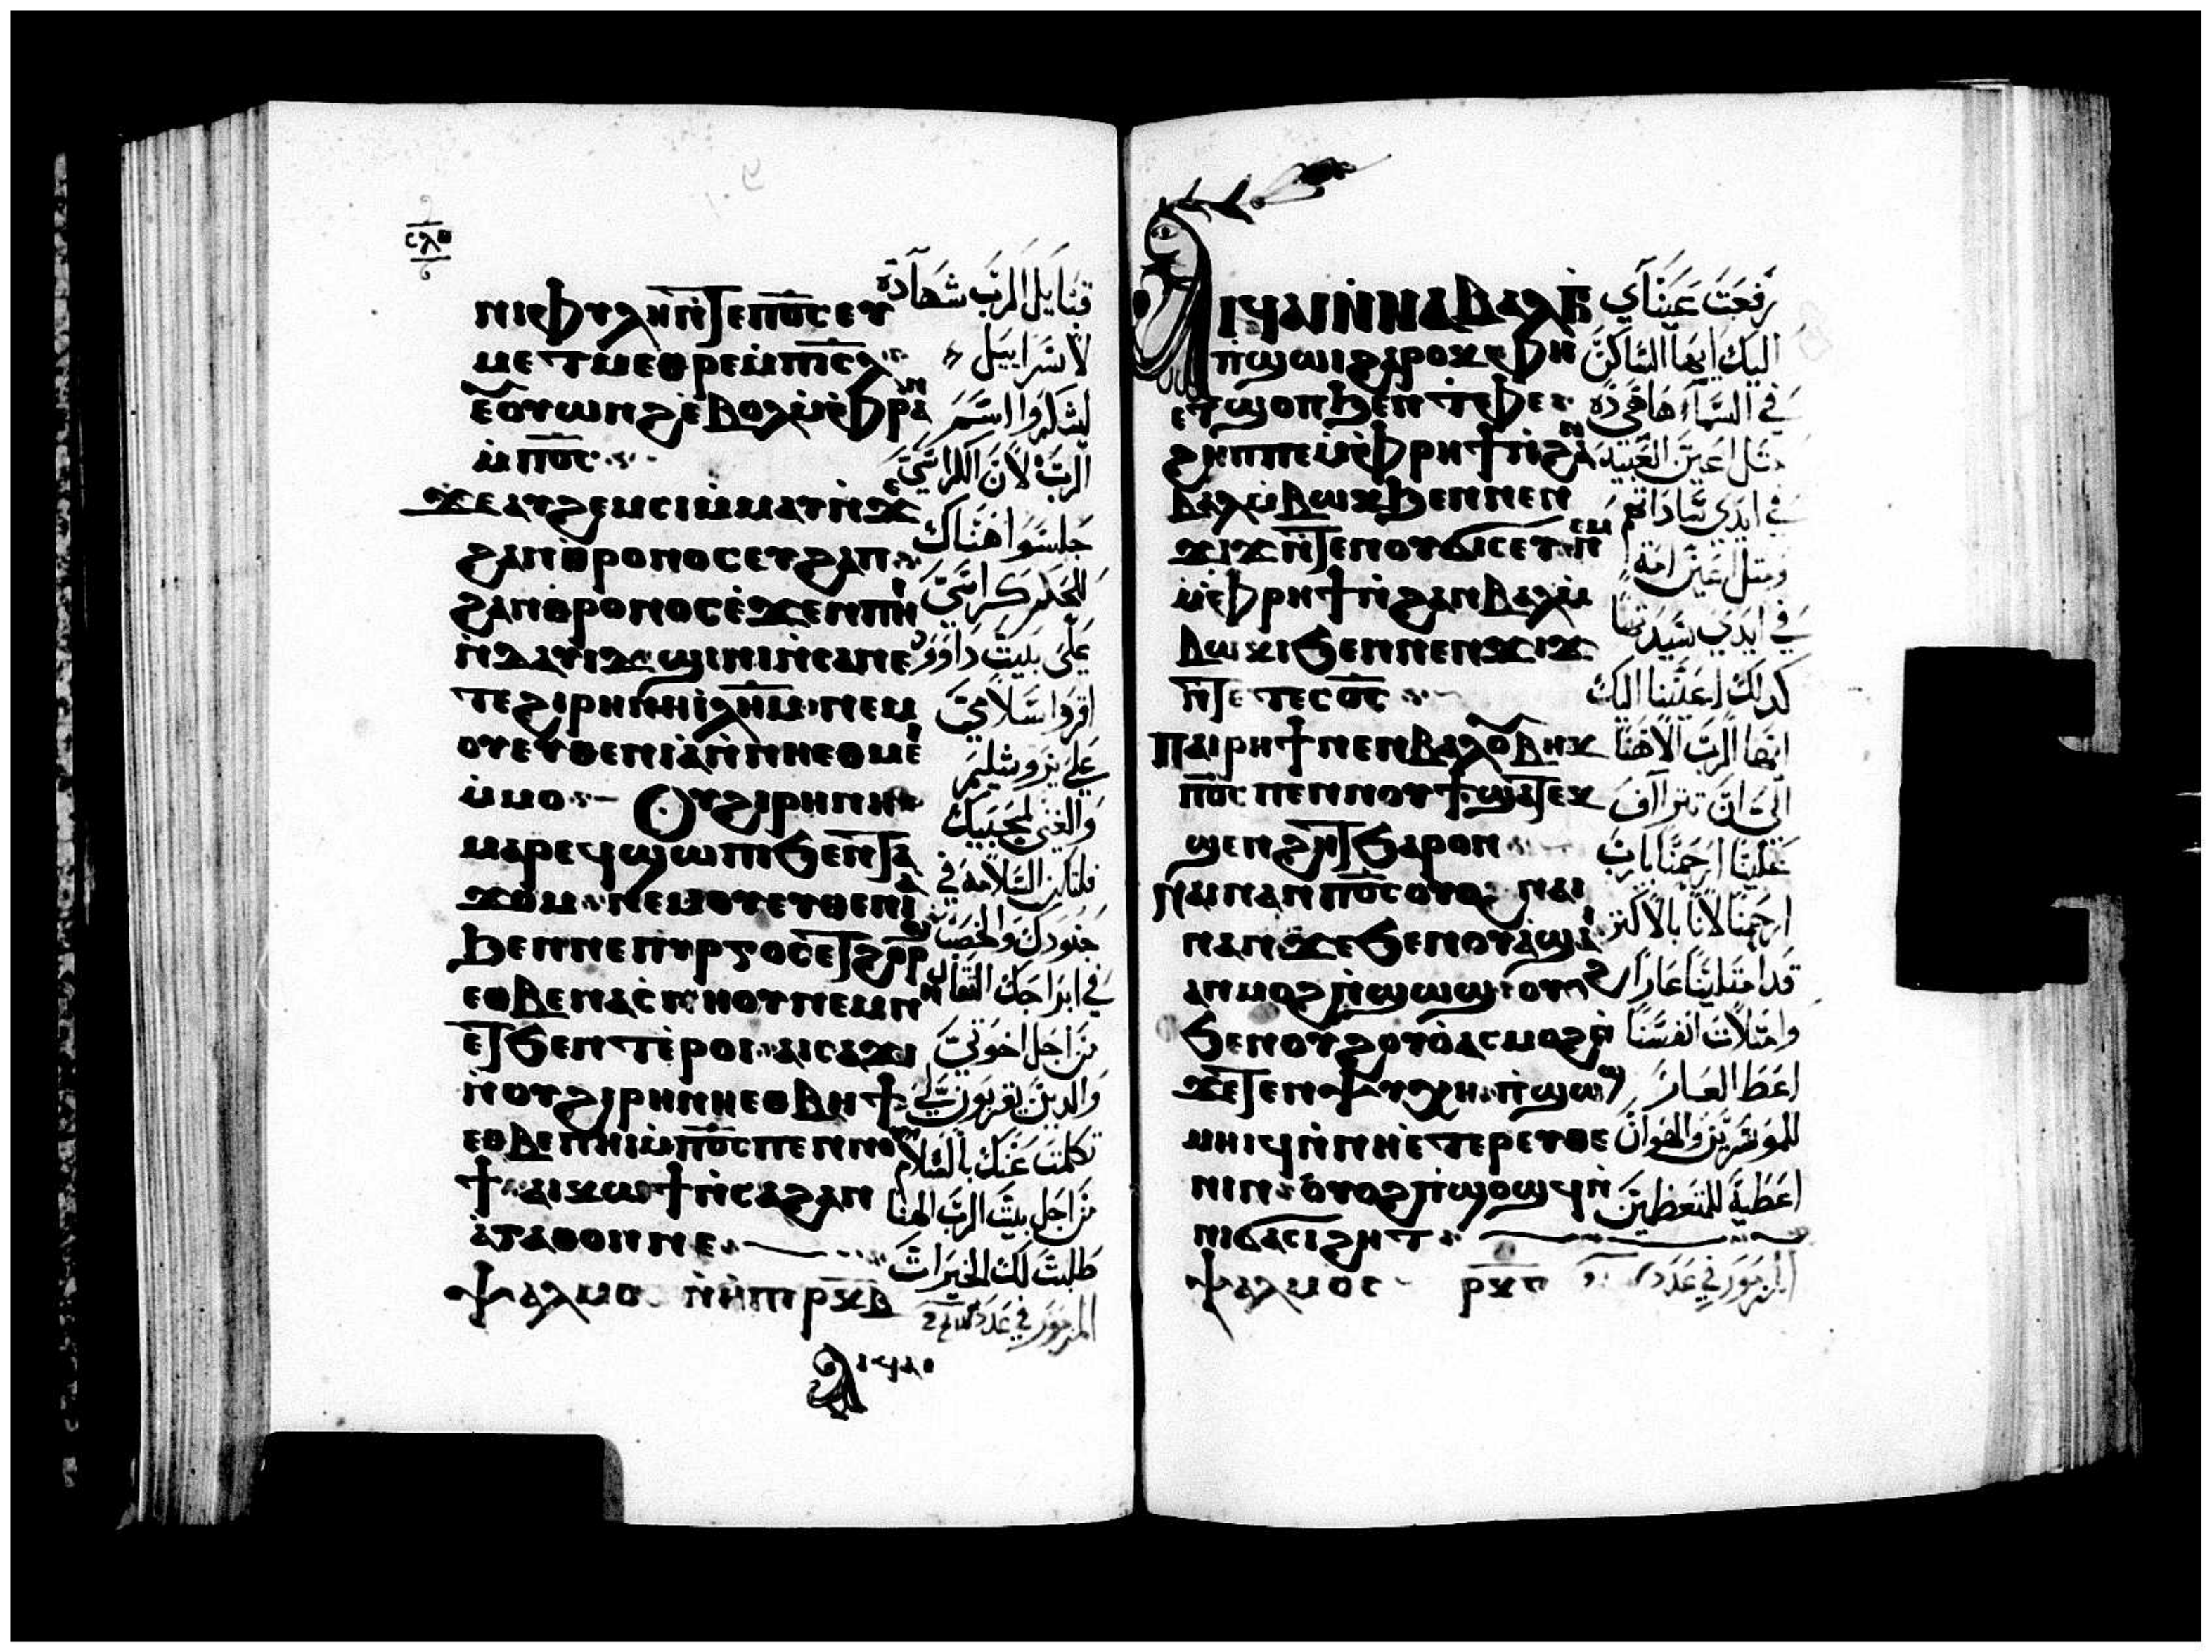 ⲥⲗⲇ
ⲛⲓⲫⲩⲗⲏⲛ̀ⲧⲉⲡⲟ̅ⲥ̅ⲉⲩ
ⲙⲉⲧⲙⲉⲑⲣⲉⲙ̀ⲡⲓⲥ̅ⲗ̅
ⲉⲟⲩⲱⲛϩⲉ̀ⲃⲟⲗⲙ̀ⲫⲣⲁⲛ
ⲙ̀ⲡⲟ̅ⲥ̅
ϫⲉⲁⲩϩⲉⲙⲥⲓⲙ̀ⲙⲁⲩⲛ̀ϫⲉ
ϩⲁⲛⲑⲣⲟⲛⲟⲥⲉⲩϩⲁⲡ
ϩⲁⲛⲑ̀ⲣⲟⲛⲟⲥⲉ̀ϫⲉⲛⲡⲏⲓ
ⲛ̀ⲇⲁⲩⲓⲇϣⲓⲛⲓⲛ̀ⲥⲁⲛⲉ
ⲧⲉϩⲓⲣⲏⲛⲏⲓ̀ⲗ̅ⲏ̅ⲙ̅ⲛⲉⲙ
ⲟⲩⲉⲩⲑⲉⲛⲓⲁ̀ⲛ̀ⲛⲏⲉⲑⲙⲉⲓ
ⲙ̀ⲙⲟ Ⲟⲩϩⲓⲣⲏⲛⲏ
ⲙⲁⲣⲉϥϣⲱⲡⲓϧⲉⲛⲧⲁ
ϫⲟⲙⲛⲉⲙⲟⲩⲉⲩⲑⲉⲛⲓⲁ
ϧⲉⲛⲛⲉⲡⲩⲣⲅⲟⲥⲉⲧϩⲟⲣϣ
ⲉⲑⲃⲉⲛⲁⲥⲛⲏⲟⲩⲛⲉⲙⲛⲏ
ⲉⲧϧⲉⲛⲧⲉ̀ⲣⲟⲓⲁⲓⲥⲁϫⲓ
ⲛ̀ⲟⲩϩⲓⲣⲏⲛⲏⲉⲑⲃⲏϯ
ⲉⲑⲃⲉⲡⲏⲓⲙ̀ⲡⲟ̅ⲥ̅ⲡⲉⲛⲛⲟⲩ
ϯⲁⲓⲕⲱϯⲛ̀ⲥⲁϩⲁⲛ
ⲁ̀ⲅⲁⲑⲟⲛⲛⲉ
ⲯⲁⲗⲙⲟ ⲣⲕⲃ
ⲁⲓϥⲁⲓ
قَبَايَل الرَب شَهَادَة
لاسَرَاييَل
ليَشكرَوا اسَمَ
الرَبَ لاَنَ الكرَاسَيَ
جَلسَوَا هَنَاك
للحَكم كَرَاسَيَ
عَلىَ بَيتَ دَاوَوَد
اقرَوَا سَلامَيَ
عَلىَ يَرَوشليمَ
وَالغنَى لمحَبَيَك
فلتَكَن السَلامَة في
جَنوَدَك وَالخصَبَ
في ابرَاجَك الثقَال
مَن اجَل اخوَتيَ
وَالديَن يَقربَوَن ليَ
تكلمَت عَنَك بالسَلام
مَن اجَل بيتَ الرَبَ الهنَا
طَلبتَ لَك الخيَرَاتَ
المَزمَوَر في عَدَد
ⲁⲓϥⲁⲓⲛ̀ⲛⲁⲃⲁⲗⲉ̀
ⲡ̀ϣⲱⲓϩⲁⲣⲟⲕⲫⲏ
ⲉⲧϣⲟⲡϧⲉⲛⲧⲫⲉ
ϩⲏⲡⲡⲉⲙ̀ⲫⲣⲏϯⲛ̀ϩⲁⲛ
ⲃⲁⲗⲙ̀ⲃⲱⲕϧⲉⲛⲛⲉⲛ
ϫⲓϫⲛ̀ⲧⲉⲛⲟⲩϭⲓⲥⲉⲩⲛⲉⲙ
ⲙ̀ⲫⲣⲏϯⲛ̀ϩⲁⲛⲃⲁⲗⲙ̀
ⲃⲱⲕⲓϧⲉⲛⲛⲉⲛϫⲓϫ
ⲛ̀ⲧⲉⲧⲉⲥⲟ̅ⲥ̅
ⲡⲁⲓⲣⲏϯⲛⲉⲛⲃⲁⲗⲟⲃⲏⲕ
ⲡⲟ̅ⲥ̅ⲡⲉⲛⲛⲟⲩϯϣⲁⲧⲉⲕ
ϣⲉⲛϩⲏⲧϧⲁⲣⲟⲛ
ⲛⲁⲓⲛⲁⲛⲡⲟ̅ⲥ̅ⲟⲩⲟϩ ⲛⲁⲓ
ⲛⲁⲛϫⲉϧⲉⲛⲟⲩⲁ̀ϣⲁⲓ
ⲁⲛⲙⲟϩⲛ̀ϣⲱϣⲟⲩⲟϩ
ϧⲉⲛⲟⲩϩⲟⲩⲟ̀ⲁⲥⲙⲟϩⲛ̀
ϫⲉⲧⲉⲛⲯⲩⲭⲏⲡ̀ϣⲱϣ
ⲙⲏⲓϥⲛ̀ⲛⲏⲉ̀ⲧⲉⲣⲉⲩⲑⲉ
ⲛⲓⲛⲟⲩⲟϩⲡ̀ϣⲟϣϥⲛ̀
ⲛⲓϭⲁⲥⲓϩⲏⲧ
ⲯⲁⲗⲙⲟⲥ ⲣⲕⲅ
رَفعَتَ عَينَآي
اليَكَ ايهَا السَاكنَ
في السَمَآء هَا هَي دَة
مَثل اعَيَن العَبَيَد
في ايَدَي سَادَاتهَم
وَمَثل اعَيَن امَة
في ايَدَي سَيدَتهَا
كَدَلكَ اعَيَننَا اليَك
ايَهَا الرَبَ الاهَنَا
اليَ انَ تترَاآف
عَليَنَا ارحَمَنَا يَارَبَ
ارحَمَنَا لانَا بالاكثر
قدَ امَتلينَا عَارَا
وامَتلات انفسَنَا
اعَطَ العَارَ
للموَسَرَيَن وَالهَوَانَ
اعَطَيَة للمَتعَظمَيَنَ
المَزمَوَر في عَدَد